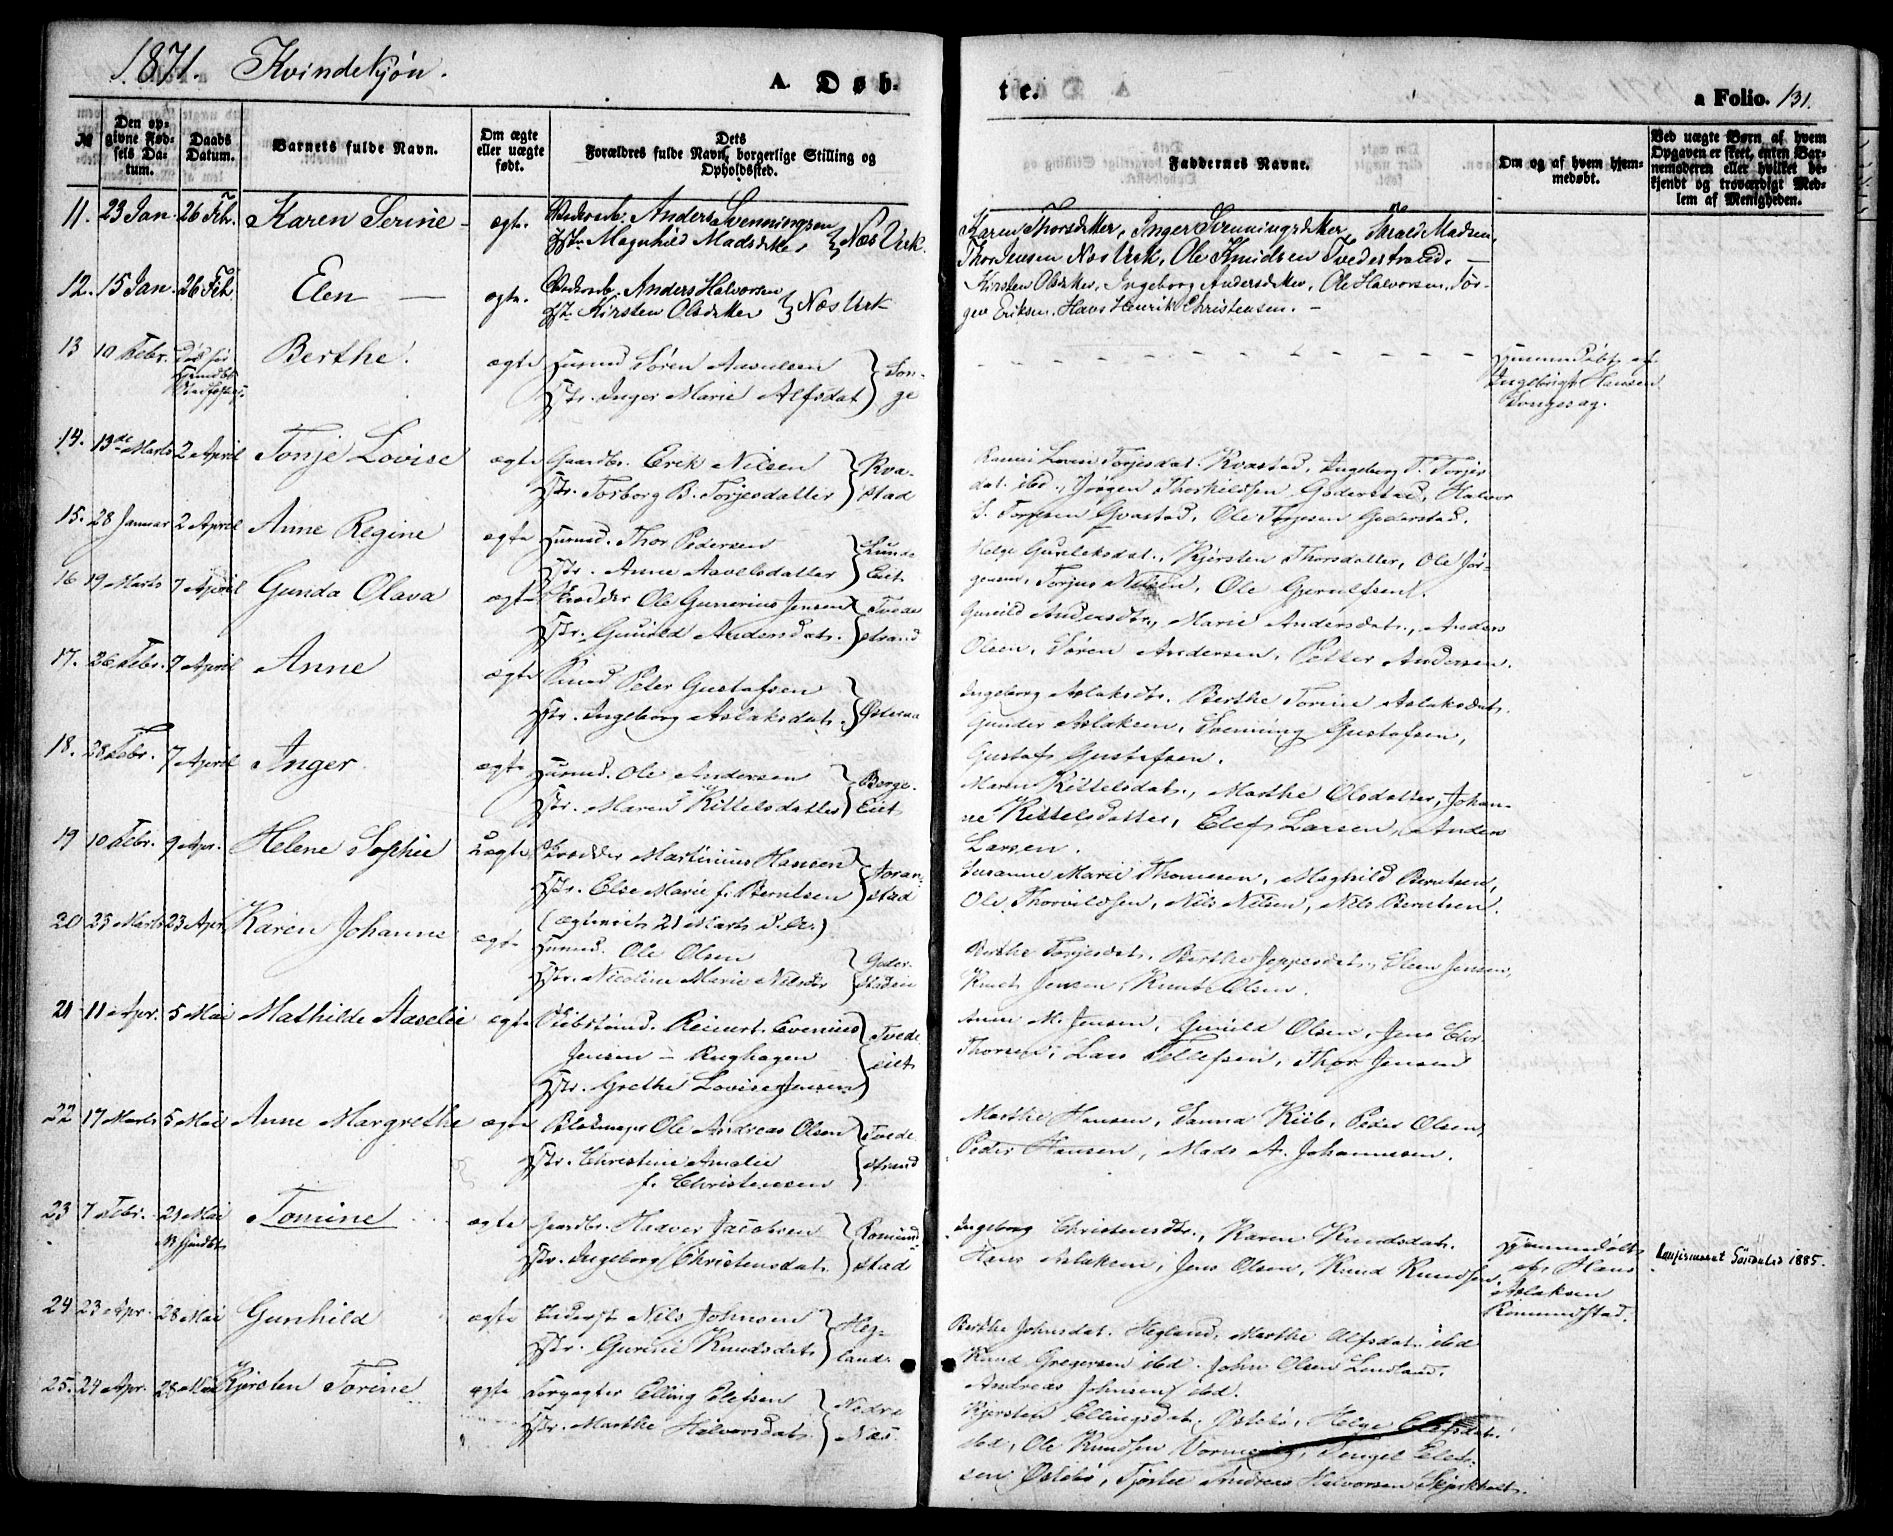 1871. Kvindekjøn.
A. Døb-
te.
a Folio. 131.
№
Den op-
givne Fød-
sels Da-
tum.
Daabs
Datum.
Barnets fulde Navn.
Om ægte
eller uægte
født.
Dets
Forældres fulde Navn, borgerlige Stilling og
Opholdssted.
Faddernes Navne.
Om og af hvem hjem-
medøbt.
Ved uægte Børn af hvem
Opgaven er skeet, enten Bar-
nemoderen eller hvilket be-
kjendt og troværdigt Med-
lem af Menigheden.
11. 23 Jan 26 Feb. Karen Serine - ægte. Anders Svenningsen
Hstr. Magnhild Madsdtter } Næs Verk.
Karen Thorsdtter, Inger Svenningsdtter, Madsen,
Thor Jensen Næs Verk, Ole Knudsen Tvedestrand. -
12. 15 Jan. 26 Feb Elen - ægte. Anders Halvorsen
Hstr. Kirsten Olsdtter } Næs Verk
Kirsten Olsdtter, Ingeborg Andersdtter, Ole Halvorsen, Jør-
gen Eriksen, Hans Henrik Christensen. -
13 10 Febr. Død før
Stadfestelse
Berthe. ægte Husmd Søren Aasulsen
Hstr. Inger Marie Alfsdat } Son-
ge
Hjemmedøbt af
Ingebrigt Hansen
Songesag.
14. 13de Marts 2 April Tonje Lovise ægte Gaardbr. Erik Nilsen
Hstr. Torborg B. Torjesdatter } Kva-
stad
Lovise Torjesdat. Kvastad, Ingeborg T. Torjes
dat. ibd., Jörgen Thorkildsen Goderstad, Halvor
S. Torjesen Qvastad, Ole Torjesen Goderstad.
15. 28 Januar 2 April Anne Regine ægte Husmd. Thor Pedersen
Hstr. Anne Aavelsdatter } Lunde
Eiet
Helge Gunleksdat., Kjersten Thorsdatter, Ole Jør-
gensen, Torjus Nilsen, Ole Gjerulfsen.
16 19 Marts 7 April Gunda Olava ægte Skrædder Ole Gunerius Jensen
Hstr. Gunild Andersdat. } Tvede
strand
Gunild Andersdtr, Marie Andersdat., Anders
Olsen, Søren Andersen, Petter Andersen.
17. 26 Febr. 7 April Anne ægte Smed Peter Gustafsen
Hstr. Ingeborg Aslaksdat. } Østeraa
Ingeborg Aslaksdtr. Berthe Torine Aslaksdat.
Gunder Aslaksen, Svenning Gustafsen,
Gustaf Gustafsen.
18. 28 Febr. 7 April Inger ægte Husmd. Ole Andersen
Hstr. Maren Kittelsdatter } Berge-
Eiet
Maren Kittelsdat., Marthe Olsdatter, Johan-
ne Kittelsdatter, Elef Larsen, Anders
Larsen.
19 10 Febr. 9 Apr. Helene Sophie Uægte Skrædder Martinius Hansen
Hstr. Else Marie f. Berntsen } Goran-
stad
(ægteviet 21 Marts d. A.)
Susanne Marie Thomesen, Maghild Berntsen,
Ole Thorvildsen, Nils Nilsen, Nils Berntsen.
20 25 Marts 23 Apr. Karen Johanne ægte Husmd. Ole Olsen
Hstr. Nicoline Marie Nilsdtr } Goder-
staden
Berthe Torjesdat. Berthe Jeppesdat., Elen Jensen,
Knut Jensen, Knut Olsen.
21 11 Apr. 5 Mai Mathilde Aaselie ægte Reinert Evenius
Jensen - Rughagen
Hstr. Grethe Lovise Jensen } Tvede
eiet
Anne M. Jensen, Gunild Olsen, Jens Chr.
Thorsen, Lars Tellefsen, Thor Jensen
22 17 Marts 5 Mai Anne Margrethe ægte Blokmager Ole Andreas Olsen
Hstr. Christine Amalie
f. Christensen } Tvede
strand
Marthe Hansen, Sanna Kiib, Peder Olsen,
Peder Hansen, Mads A. Johannesen.
23 7 Febr. 21 Mai
Tomine ægte Gaardbr. Halvor Jacobsen
Hstr. Ingeborg Christensdat. } Romund-
stad
Ingeborg Christensdtr., Karen Knudsdat.
Hans Aslaksen, Jens Olsen, Knud Knudsen.
Hjemmedøbt
af Hans
Aslaksen
Romundstad.
Konfirmeret Søndeled 1885.
24 23 Apr. 28 Mai Gunhild ægte Inderst Nils Johnsen
Hstr. Gurine Knudsdat. } Heg-
land.
Berthe Johnsdat. Hegland, Marthe Alfsdat. ibd
Knud Gregersen ibd. John Olsen Lindland.
Andreas Johnsen ibd.
25. 24 Apr. 28 Mai Kjersten Torine ægte Forpagter Elling Elefsen
Hstr. Marthe Halvorsdat. } Nedre
Næs.
Kjersten Ellingsdat. Østebø, Helge Elefsdat.
ibd, Ole Knudsen Tengel Elef-
sen Østebø, Andreas Halvorsen Skjerkholt.